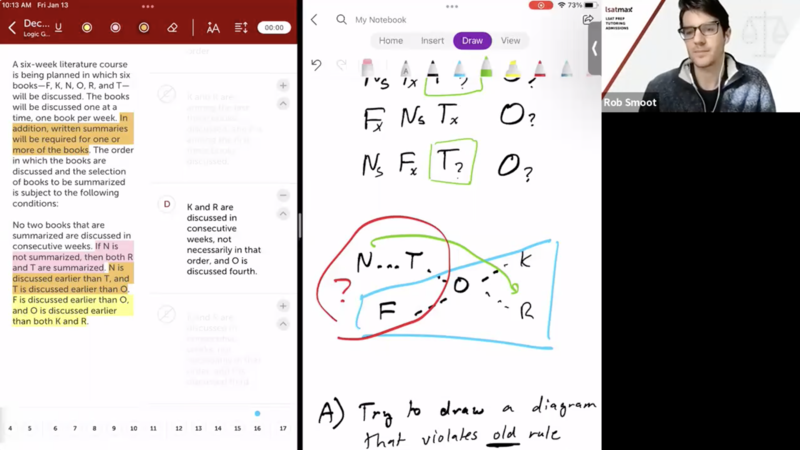 10:13 AM Fri Jan 13
73%
Dec...
Logic G...
U
AA
00:00
My Notebook
Home Insert Draw View
A six-week literature course
is being planned in which six
books—F, K, N, O, R, and T—
will be discussed. The books
will be discussed one at a
time, one book per week. In
addition, written summaries
will be required for one or
more of the books. The order
in which the books are
discussed and the selection
of books to be summarized
is subject to the following
conditions:
No two books that are
summarized are discussed in
consecutive weeks. If N is
not summarized, then both R
and T are summarized. N is
discussed earlier than T, and
T is discussed earlier than O.
F is discussed earlier than O,
and O is discussed earlier
than both K and R.
D
K and R are
discussed in
consecutive
weeks, not
necessarily in that
order, and O is
discussed fourth.
4 5 6 7 8 9 10 11 12 13 14 15 16 17
Fx Ns Tx O?
Ns Fx T? O?
N...T
?
F
O
K
R
A) Try to draw a diagram
that violates old rule
lsatmax
LSAT PREP
TUTORING
ADMISSIONS
Rob Smoot